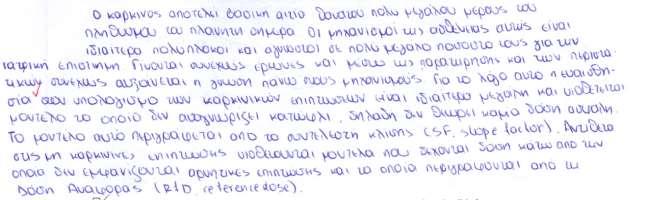 Ο καρκινος αποτελει βασικη αιτιο θανατου πολυ μεγαλου μερους του
πληθυσμου του πλανητη σημερα. Οι μηχανισμοι της ασθενειας αυτης ειναι
ιδιαιτερα πολυπλοκοι και αγνωστοι σε πολυ μεγαλο ποσοστο τους για την
ιατρικη επιστημη. Γινονται συνεχως ερευνες και μεσω της παρατηρησης και των περιστα
τικων συνεχως αυξανεται η γνωση πανω στους μηχανισμους. Για το λογο αυτο η ευαισθη
σια στον υπολογισμο των καρκινικων επιπτωσεων ειναι ιδιαιτερα μεγαλη και υιοθετειται
μοντελο το οποιο δεν αναγνωριζει κατωφλι, δηλαδη δεν θεωρει καμια δοση ασφαλη.
Το μοντελο αυτο περιγραφεται απο το συντελεστη κλισης (SF, slope factor). Αντιθετα
στις μη καρκινικες επιπτωσεις υιοθετουνται μοντελα που δεχονται δοση κατω απο την
οποια δεν εμφανιζονται αρνητικες επιπτωσεις και τα οποια περιγραφονται απο τη
Δοση Αναφορας (RfD, reference dose).